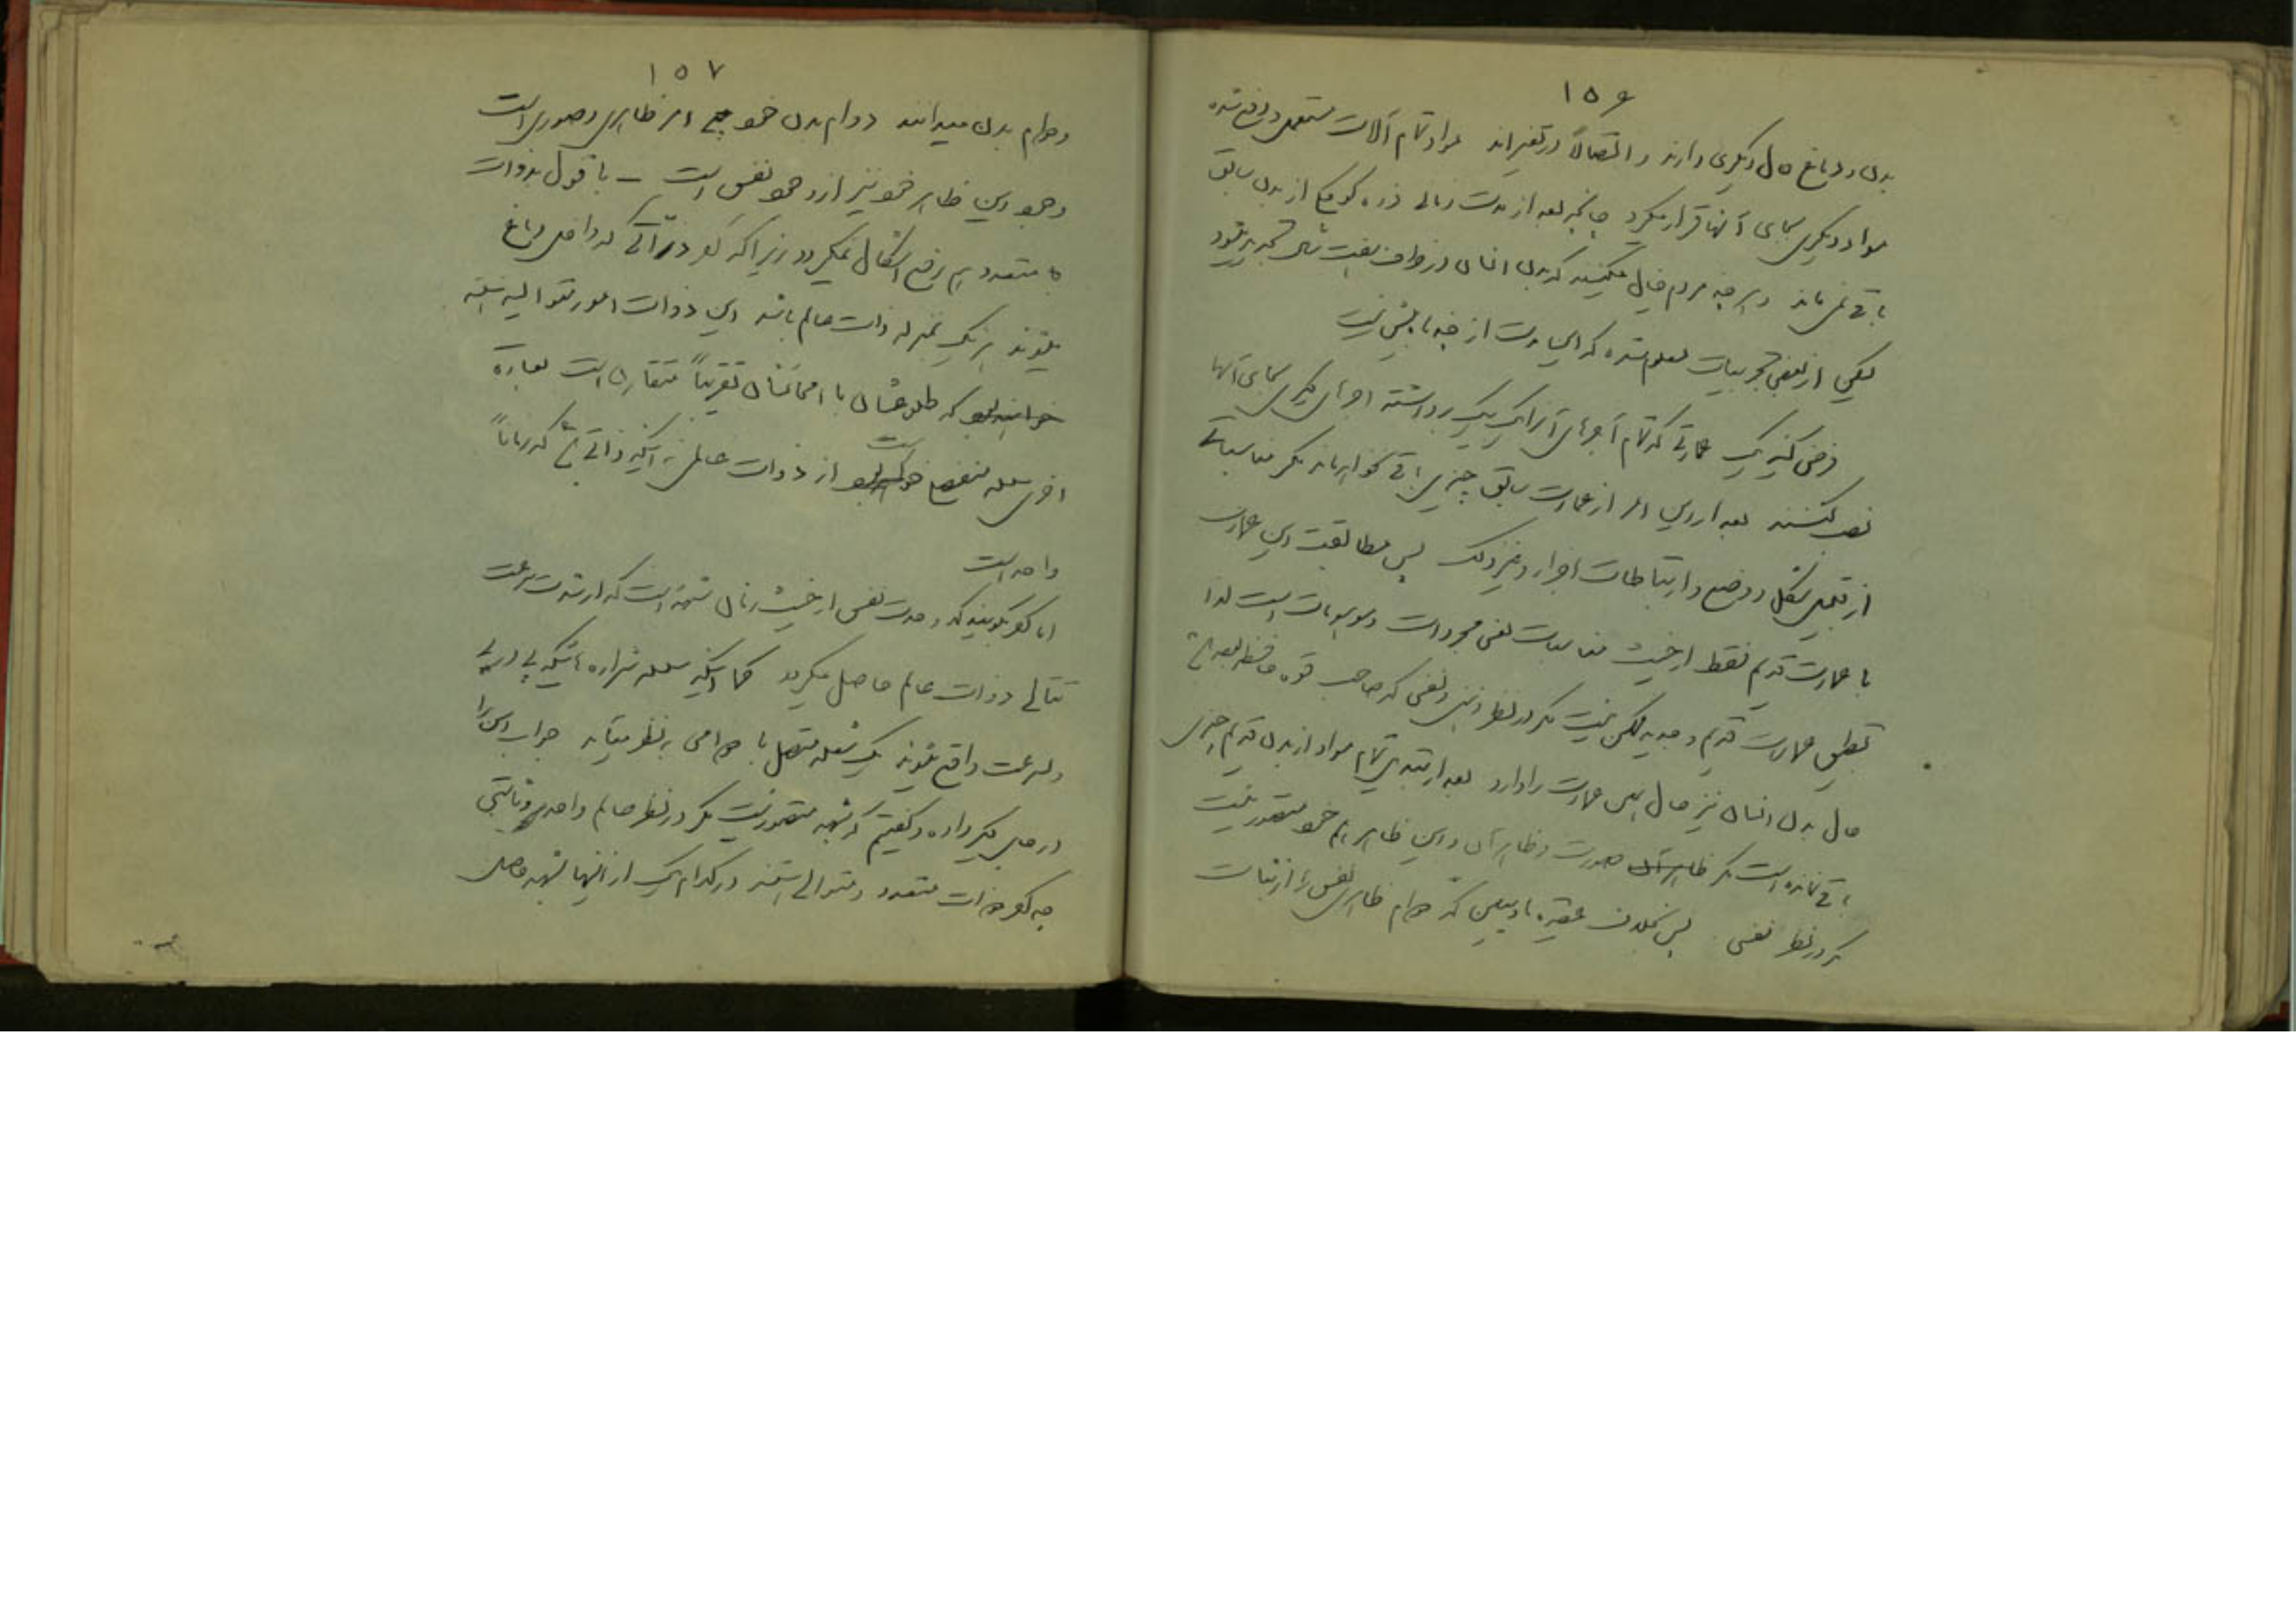 ۱۵۶
بدن و دماغ حال دیگری دارند و اتصالاً در تغیراند مواد تمام آلات مستعمل و دفع شده
مواد دیگری بجای آنها قرار میگیرد چنانچه بعد از مدت زمانی ذره کوچکی از بدن سابق
باقی نمی ماند و اگر چه مردم خیال میکنند که بدن انسان در ظرف هفت سال تجدید میشود
لیکن از بعضی تجربیات معلوم شده که این مدت از چند ماه بیش نیست
فرض کنید یک عمارتی که تمام آجرهای آنرا یک یک برداشته آجرهای دیگری بجای آنها
نصب کنند بعد از این امر از عمارت سابق چیزی باقی نخواهد ماند مگر مناسباتی
از قبیل شکل و وضع و ارتباطات اجزاء و غیر ذلک پس مطابقت این عمارت
با عمارت قدیم فقط از حیث مناسبات یعنی مجردات و موهومات است لذا
تطبیق عمارت قدیم و جدید ممکن نیست مگر در نظر ذهنی و نفسی که صاحب قوه حافظه بوده باشد
حال بدن انسان نیز حال همین عمارت را دارد بعد از تبدیل تمام مواد از بدن قدیم چیزی
باقی نمانده است مگر ظاهر آن صورت و ظاهر آن و این ظاهر هم خود متصور نیست
مگر در نظر نفس. پس بخلاف عقیده مادیین که دوام ظاهری نفس را از نتایج
۱۵۷
دوام بدن میدانند دوام بدن خود یک امر ظاهری و صوری است
و وجود این ظاهر خود نیز از وجود نفس است – با قول بذوات
متعدد هم رفع اشکال نمیگردد زیرا که گو ذراتی که داخل دماغ
میشوند هر یک بمنزله ذات عالم باشد این ذوات امور متوالیه هستند
خواهند بود که طلوعشان با امحائشان تقریباً متقارن است بعبارة
اخری سلسله منفصل خواهد بود است از ذوات عالمه نه اینکه ذاتی باشد که زماناً
واحد است
اما گو بگویند که وحدت نفس از حیث زمان شبهه است که از شدت سرعت
تتالی ذوات عالم حاصل میگردد کما اینکه سلسله شراره هائیکه پی در پی
و بسرعت واقع شوند یک شعله متصل با دوامی بنظر میآید جواب این را
در جای دیگر داده و گفتیم که شبهه متصور نیست مگر در نظر عالم واحد و ثابتی
چه گو ذوات متعدد و متوالی هستند در کدام یک از اینها شبهه حاصل